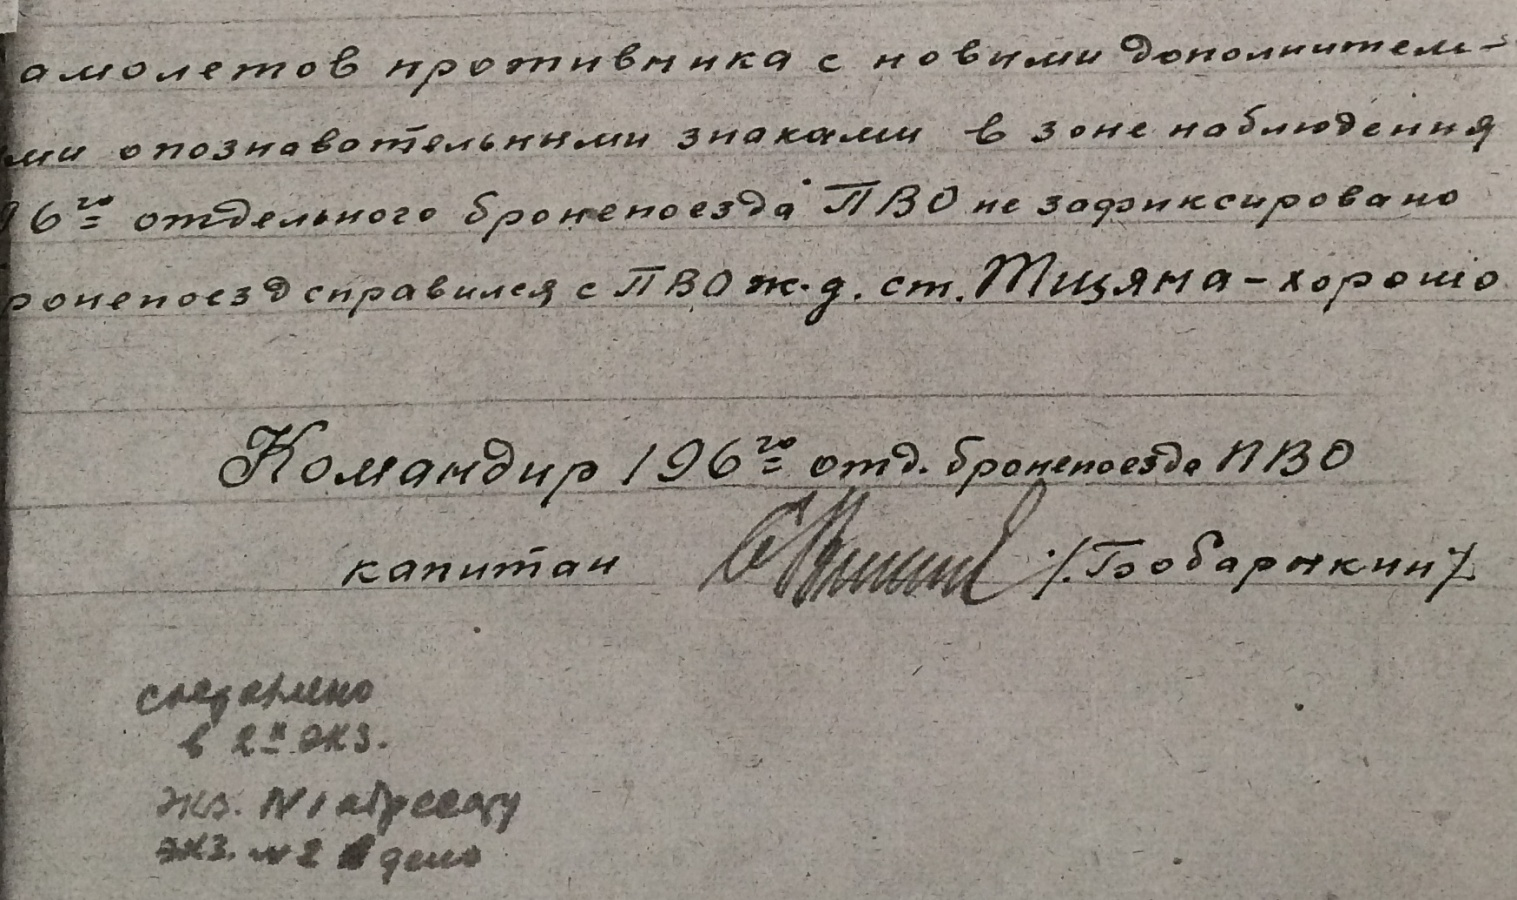 амолетов противника с новыми дополнитель-
ми опознавательными знаками в зоне наблюдения
96го отдельного бронепоезда ПВО не зафиксировано
ронепоезд справился с ПВО ж.д. ст. Мцяна - хорошо
Командир 196го отд. бронепоезда ПВО
капитан /Бобарыкин/
сделано
в 2х экз.
экз. №1 адресату
экз. №2 в дело